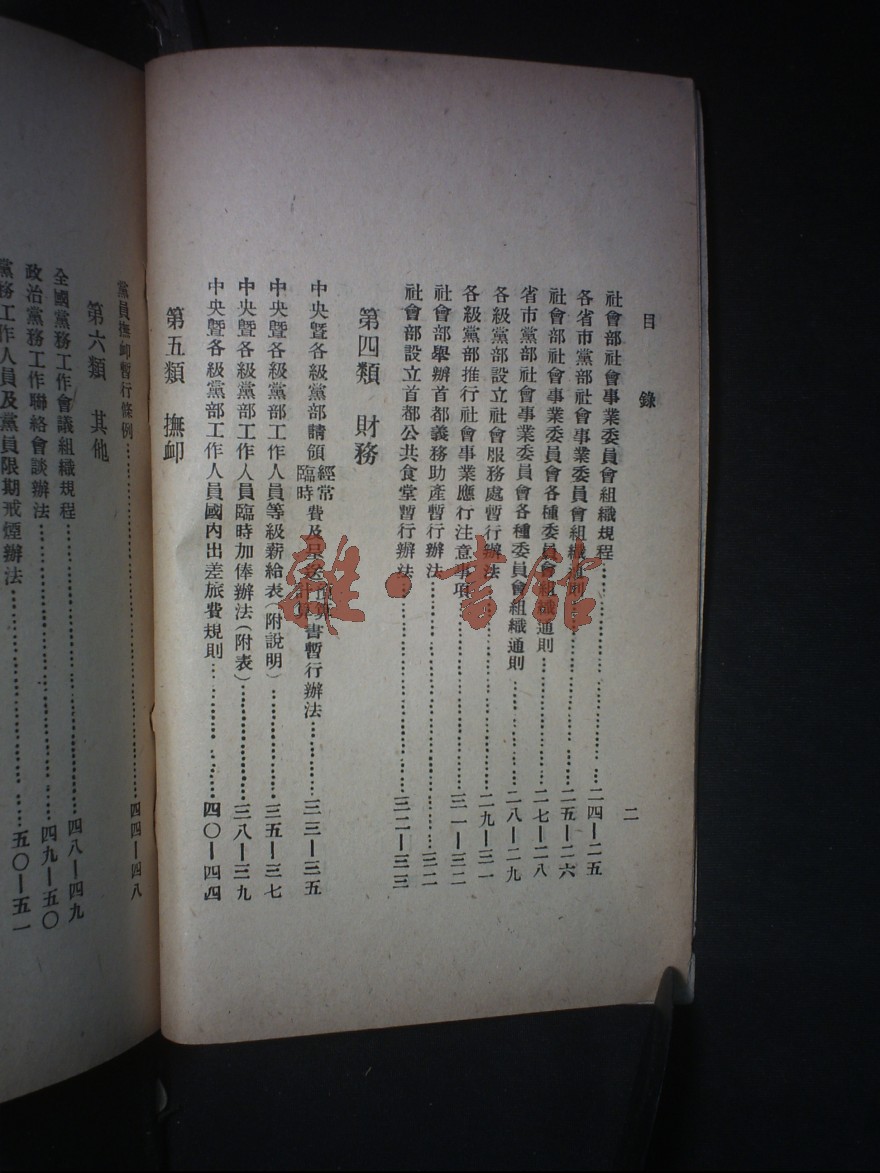 目錄 二
社會部社會事業委員會組織規程……二四—二五
各省市黨部社會事業委員會組織通則……二五—二六
社會部社會事業委員會各種委員會組織通則……二七—二八
省市黨部社會事業委員會各種委員會組織通則……二八—二九
各級黨部設立社會服務處暫行辦法……二九—三一
各級黨部推行社會事業應行注意事項……三一—三二
社會部舉辦首都義務助產暫行辦法……三二
社會部設立首都公共食堂暫行辦法……三二—三三
第四類 財務
中央暨各級黨部請領經常臨時費及呈送預算計算書暫行辦法……三三—三五
中央暨各級黨部工作人員等級薪給表(附說明)……三五—三七
中央暨各級黨部工作人員臨時加俸辦法(附表)……三八—三九
中央暨各級黨部工作人員國內出差旅費規則……四〇—四四
第五類 撫卹
黨員撫卹暫行條例……四四—四八
第六類 其他
全國黨務工作會議組織規程……四八—四九
政治黨務工作聯絡會談辦法……四九—五〇
黨務工作人員及黨員限期戒煙辦法……五〇—五一
雜·書館